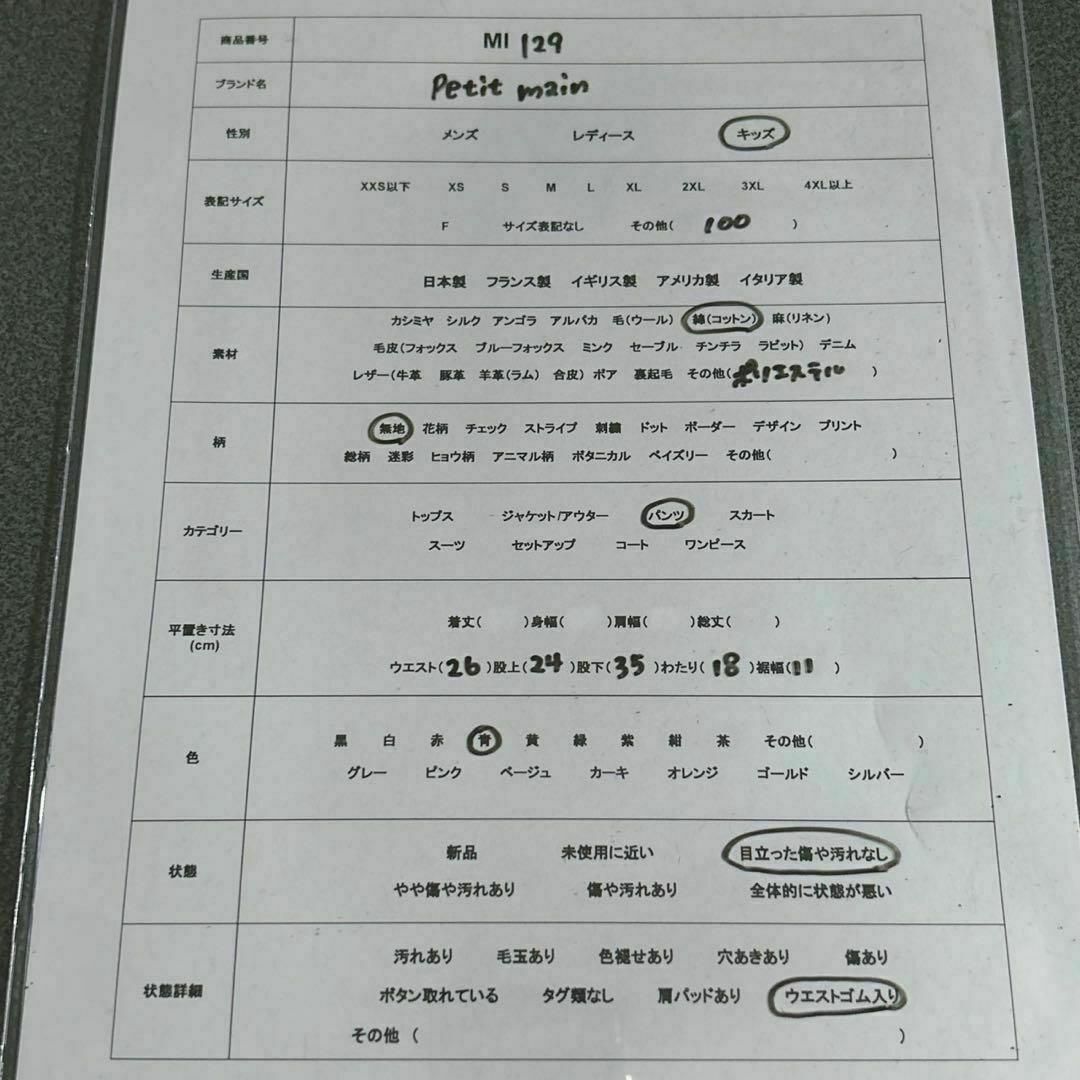 商品番号 MI 129
ブランド名 Petit main
性別 メンズ レディース キッズ
表記サイズ XXS以下 XS S M L XL 2XL 3XL 4XL以上
F サイズ表記なし その他( 100 )
生産国 日本製 フランス製 イギリス製 アメリカ製 イタリア製
素材 カシミヤ シルク アンゴラ アルパカ 毛(ウール) 綿(コットン) 麻(リネン)
毛皮(フォックス ブルーフォックス ミンク セーブル チンチラ ラビット) デニム
レザー(牛革 豚革 羊革(ラム) 合皮) ボア 裏起毛 その他(ポリエステル )
柄 無地 花柄 チェック ストライプ 刺繍 ドット ボーダー デザイン プリント
総柄 迷彩 ヒョウ柄 アニマル柄 ボタニカル ペイズリー その他( )
カテゴリー トップス ジャケット/アウター パンツ スカート
スーツ セットアップ コート ワンピース
平置き寸法 着丈( )身幅( )肩幅( )総丈( )
(cm)
ウエスト(26)股上(24)股下(35)わたり(18)裾幅(11 )
色 黒 白 赤 青 黄 緑 紫 紺 茶 その他( )
グレー ピンク ベージュ カーキ オレンジ ゴールド シルバー
状態 新品 未使用に近い 目立った傷や汚れなし
やや傷や汚れあり 傷や汚れあり 全体的に状態が悪い
状態詳細 汚れあり 毛玉あり 色褪せあり 穴あきあり 傷あり
ボタン取れている タグ類なし 肩パッドあり ウエストゴム入り
その他 ( )